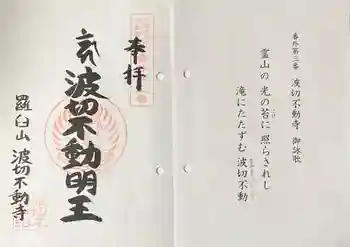 番外第三番 波切不動寺 御詠歌
霊山の 光の苔に 照らされし
滝にたたずむ 波切不動
奉拝
波切不動明王
羅臼山 波切不動寺